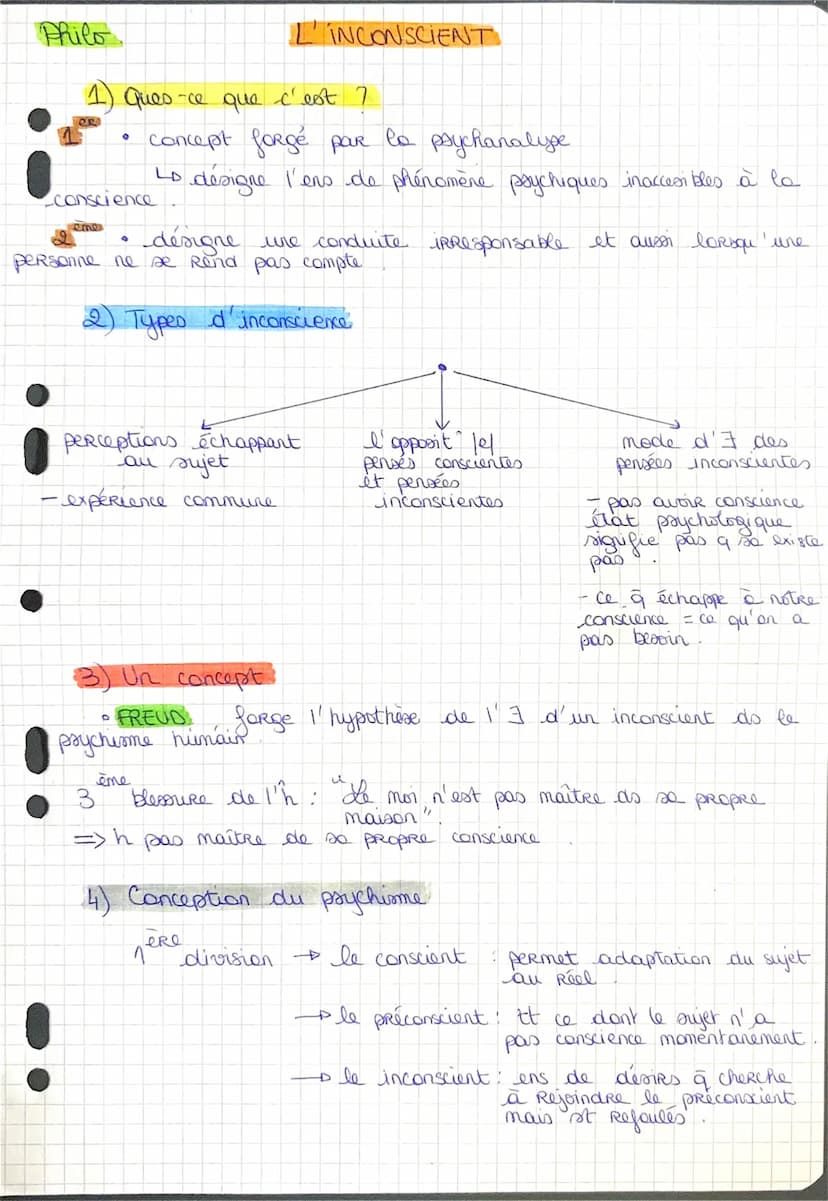 Philo
L'INCONSCIENT
1) Ques-ce que c'est ?
1er • concept forgé par la psychanalyse
↳ désigne l'ens de phénomène psychiques inaccesibles à la
conscience.
2ème • désigne une conduite irresponsable et aussi lorsqu'une
personne ne se rend pas compte.
2) Types d'inconscience
perceptions échappant
au sujet
- expérience commune
l'opposit° /e/
pensés conscientes
et pensées
inconscientes
mode d'∃ des
pensées inconscientes
- pas avoir conscience
état psychologique
signifie pas q sa existe
pas.
- ce q̄ échappe à notre
conscience = ce qu'on a
pas besoin.
3) Un concept
• FREUD forge l'hypothèse de l'∃ d'un inconscient ds le
psychisme humain.
3ème blessure de l'h̑ : "Le moi n'est pas maître ds sa propre
maison".
=> h pas maître de sa propre conscience.
4) Conception du psychisme
1ère division → le conscient : permet adaptation du sujet
au réel.
→ le préconscient : tt ce dont le sujet n'a
pas conscience momentanement.
→ le inconscient : ens de désirs q̄ cherche
à rejoindre le préconscient
mais st refoulés.